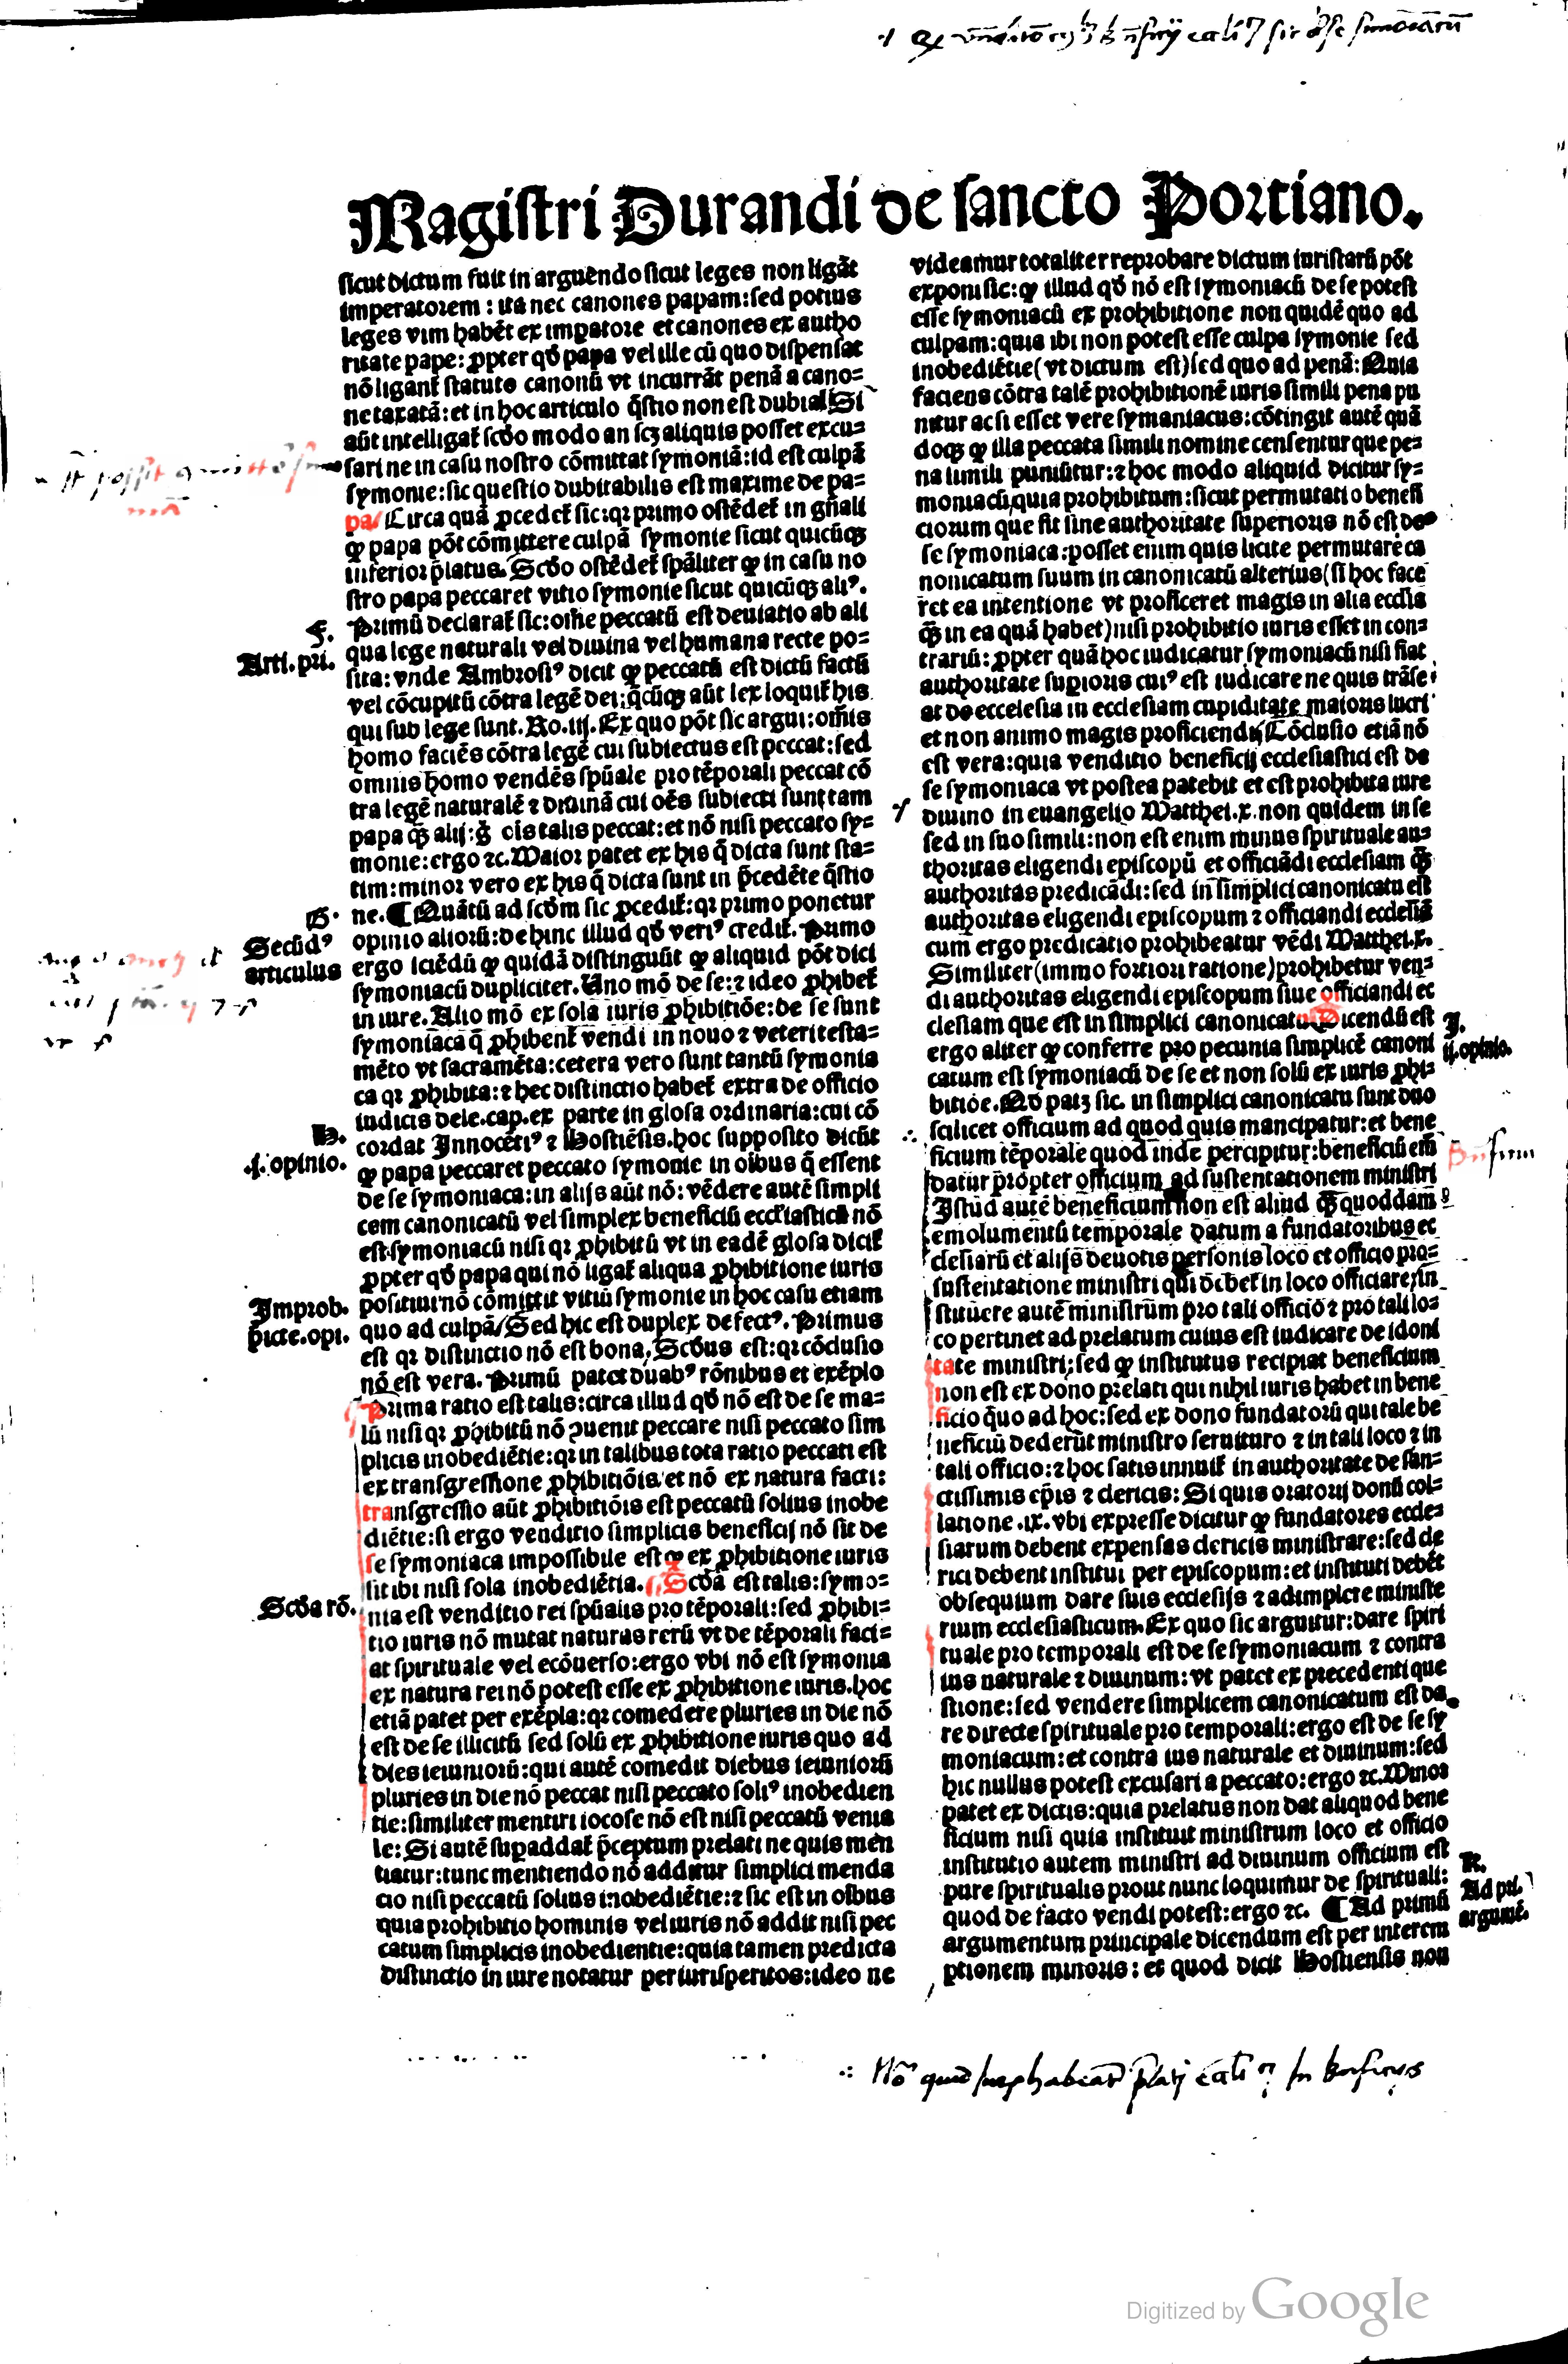 Magistri Durandi de sancto Portiano.
sicut dictum fuit in arguendo sicut leges non ligãt
imperatorem : ita nec canones papam: sed potius
leges vim habẽt ex impatore et canones ex autho
ritate pape: ꝓpter qđ papa vel ille cũ quo dispensat
nõ ligant̃ statuto canonũ vt incurrãt penã a cano=
ne taxatã: et in hoc articulo q̃stio non est dubia/ Si
aũt intelligat̃ scđo modo an scꝫ aliquis posset excu=
sari ne in casu nostro cõmittat symoniã: id est culpã
symonie: sic questio dubitabilis est maxime de pa=
pa/ Circa quã ꝓcedet̃ sic: qꝛ primo ostẽdet̃ in gñali
ꝙ papa põt cõmittere culpã symonie sicut quicũqꝫ
inferior p̃latus. Scđo ostẽdet̃ spãliter ꝙ in casu no
stro papa peccaret vitio symonie sicut quicũqꝫ aliꝰ.
F.
Arti. pri.
Primũ declarat̃ sic: om̃e peccatũ est deuiatio ab ali
qua lege naturali vel diuina vel humana recte po=
sita: vnde Ambrosiꝰ dicit ꝙ peccatũ est dictũ factũ
vel cõcupitũ cõtra legẽ dei: q̃cũqꝫ aũt lex loquit̃ his
qui sub lege sunt. Ro. iij. Ex quo põt sic argui: om̃is
homo faciẽs cõtra legẽ cui subiectus est peccat: sed
omnis homo vendẽs spũale pro tẽporali peccat cõ
tra legẽ naturalẽ ⁊ diuinã cui oẽs subiecti sunt tam
papa q̃ꝫ alij: g̃ eis talis peccat: et nõ nisi peccato sy=
monie: ergo ⁊c. Maior patet ex his q̃ dicta sunt sta=
tim: minor vero ex his q̃ dicta sunt in p̃cedẽte q̃stio
G.
Secũdꝰ
articulus
ne. ¶ Quãtũ ad scđm sic ꝓcedit̃: qꝛ primo ponetur
opinio aliorũ: dehinc illud qđ veriꝰ credit̃. Primo
ergo sciẽdũ ꝙ quidã distinguũt ꝙ aliquid põt dici
symoniacũ dupliciter. Uno mõ de se: ⁊ ideo ꝓhibet̃
in iure. Alio mõ ex sola iuris ꝓhibitiõe: de se sunt
symoniaca q̃ ꝓhibent̃ vendi in nouo ⁊ veteri testa=
mẽto vt sacramẽta: cetera vero sunt tantũ symonia
ca qꝛ ꝓhibita: ⁊ hec distinctio habet̃ extra de officio
iudicis dele. cap. ex parte in glosa ordinaria: cui cõ
H.
.j. opinio.
cordat Innocẽtiꝰ ⁊ Hostiẽsis. hoc supposito dicũt
ꝙ papa peccaret peccato symonie in oĩbus q̃ essent
de se symoniaca: in alijs aũt nõ: vẽdere autẽ simpli
cem canonicatũ vel simplex beneficiũ eccl̃iasticũ nõ
est symoniacũ nisi qꝛ ꝓhibitũ vt in eadẽ glosa dicit̃
ꝓpter qđ papa qui nõ ligat̃ aliqua ꝓhibitione iuris
Improb.
dicte. opi.
positiui nõ cõmittit vitiũ symonie in hoc casu etiam
quo ad culpã/ Sed hic est duplex defectꝰ. Primus
est qꝛ distinctio nõ est bona. Scđus est: qꝛ cõclusio
nõ est vera. Primũ patet duabꝰ rõnibus et exẽplo
Prima ratio est talis: circa illud qđ nõ est de se ma=
lũ nisi qꝛ ꝓhibitũ nõ ꝯuenit peccare nisi peccato sim
plicis inobediẽtie: qꝛ in talibus tota ratio peccati est
ex transgressione ꝓhibitiõis et nõ ex natura facti:
transgressio aũt ꝓhibitiõis est peccatũ solius inobe
diẽtie: si ergo venditio simplicis beneficij nõ sit de
se symoniaca impossibile est ꝙ ex ꝓhibitione iuris
sit ibi nisi sola inobediẽtia. Scđa est talis: symo=
Scđa rõ.
nia est venditio rei spũalis pro tẽporali: sed ꝓhibi=
tio iuris nõ mutat naturas rerũ vt de tẽporali faci=
at spirituale vel ecõuerso: ergo vbi nõ est symonia
ex natura rei nõ potest esse ex ꝓhibitione iuris. hoc
etiã patet per exẽpla: qꝛ comedere pluries in die nõ
est de se illicitũ sed solũ ex ꝓhibitione iuris quo ad
dies ieiuniorũ: qui autẽ comedit diebus ieiuniorũ
pluries in die nõ peccat nisi peccato soliꝰ inobedien
tie: similiter mentiri iocose nõ est nisi peccatũ venia
le: Si autẽ supaddat̃ p̃ceptum prelati ne quis men
tiatur: tunc mentiendo nõ additur simplici menda
cio nisi peccatũ solius inobediẽtie: ⁊ sic est in oĩbus
quia prohibitio hominis vel iuris nõ addit nisi pec
catum simplicis inobedientie: quia tamen predicta
distinctio in iure notatur per iurisperitos: ideo ne
videamur totaliter reprobare dictum iuristarũ põt
exponi sic: ꝙ illud qđ nõ est symoniacũ de se potest
esse symoniacũ ex prohibitione non quidẽ quo ad
culpam: quia ibi non potest esse culpa symonie sed
inobediẽtie (vt dictum est) sed quo ad penã: Quia
faciens cõtra talẽ prohibitionẽ iuris simili pena pu
nitur ac si esset vere symoniacus: cõtingit autẽ quã
doqꝫ ꝙ illa peccata simili nomine censentur que pe=
na simili puniũtur: ⁊ hoc modo aliquid dicitur sy=
moniacũ, quia prohibitum: sicut permutatio benefi
ciorum que fit sine authoritate superioris nõ est de
se symoniaca: posset enim quis licite permutare ca
nonicatum suum in canonicatũ alterius (si hoc face
ret ea intentione vt proficeret magis in alia ecclĩa
q̃ꝫ in ea quã habet) nisi prohibitio iuris esset in con=
trariũ: ꝓpter quã hoc iudicatur symoniacũ nisi fiat
authoritate supioris cuiꝰ est iudicare ne quis trãse
at de eccelesia in ecclesiam cupiditate maioris lucri
et non animo magis proficiendi/ Cõclusio etiã nõ
est vera: quia venditio beneficij ecclesiastici est de
se symoniaca vt postea patebit et est prohibita iure
diuino in euangelio Matthei. x. non quidem in se
sed in suo simili: non est enim minus spirituale au=
thoritas eligendi episcopũ et officiãdi ecclesiam q̃ꝫ
authoritas predicãdi: sed in simplici canonicatu est
authoritas eligendi episcopum ⁊ officiandi ecclesiã
cum ergo predicatio prohibeatur vẽdi Matthei. x.
Similiter (immo fortiori ratione) prohibetur ven=
di authoritas eligendi episcopum siue officiandi ec
clesiam que est in simplici canonicatu. Dicendũ est
J.
ij. opinio.
ergo aliter ꝙ conferre pro pecunia simplicẽ canoni
catum est symoniacũ de se et non solũ ex iuris ꝓhi=
bitiõe. Qđ patꝫ sic. in simplici canonicatu sunt duo
scilicet officium ad quod quis mancipatur: et bene
ficium tẽporale quod inde percipitur: beneficiũ em̃
datur propter officium ad sustentationem ministri
Istud autẽ beneficium non est aliud q̃ꝫ quoddam
emolumentũ temporale datum a fundatoribus ec
clesiarũ et alijs deuotis personis loco et officio pro=
sustentatione ministri qui debet in loco officiare, in
stituere autẽ ministrum pro tali officio ⁊ pro tali lo=
co pertinet ad prelatum cuius est iudicare de idoni
tate ministri; sed ꝙ institutus recipiat beneficium
non est ex dono prelati qui nihil iuris habet in bene
ficio q̃o ad hoc: sed ex dono fundatorũ qui tale be
neficiũ dederũt ministro seruituro ⁊ in tali loco ⁊ in
tali officio: ⁊ hoc satis innuit̃ in authoritate de san=
ctissimis ep̃is ⁊ clericis: Si quis oratorij domũ col=
latione .ix. vbi expresse dicitur ꝙ fundatores eccle=
siarum debent expensas clericis ministrare: sed cle
rici debent institui per episcopum: et instituti debẽt
obsequium dare suis ecclesijs ⁊ adimplere ministe
rium ecclesiasticum. Ex quo sic arguitur: dare spiri
tuale pro temporali est de se symoniacum ⁊ contra
ius naturale ⁊ diuinum: vt patet ex precedenti que
stione: sed vendere simplicem canonicatum est da
re directe spirituale pro temporali: ergo est de se sy
moniacum: et contra ius naturale et diuinum: sed
hic nullus potest excusari a peccato: ergo ⁊c. Minor
patet ex dictis: quia prelatus non dat aliquod bene
ficium nisi quia instituit ministrum loco et officio
institutio autem ministri ad diuinum officium est
pure spiritualis prout nunc loquimur de spirituali:
K.
Ad pri.
argumẽ.
quod de facto vendi potest: ergo ⁊c. ¶ Ad primũ
argumentum principale dicendum est per interem
ptionem minoris: et quod dicit Hostiensis non
Digitized by Google